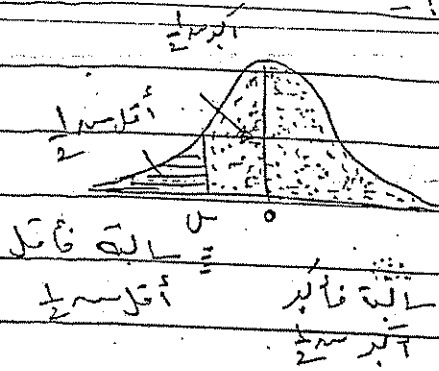 أكبر من ½
أقل من ½
س ه
سالبة فأقل
أقل من ½
سالبة فأكبر
أكبر من ½